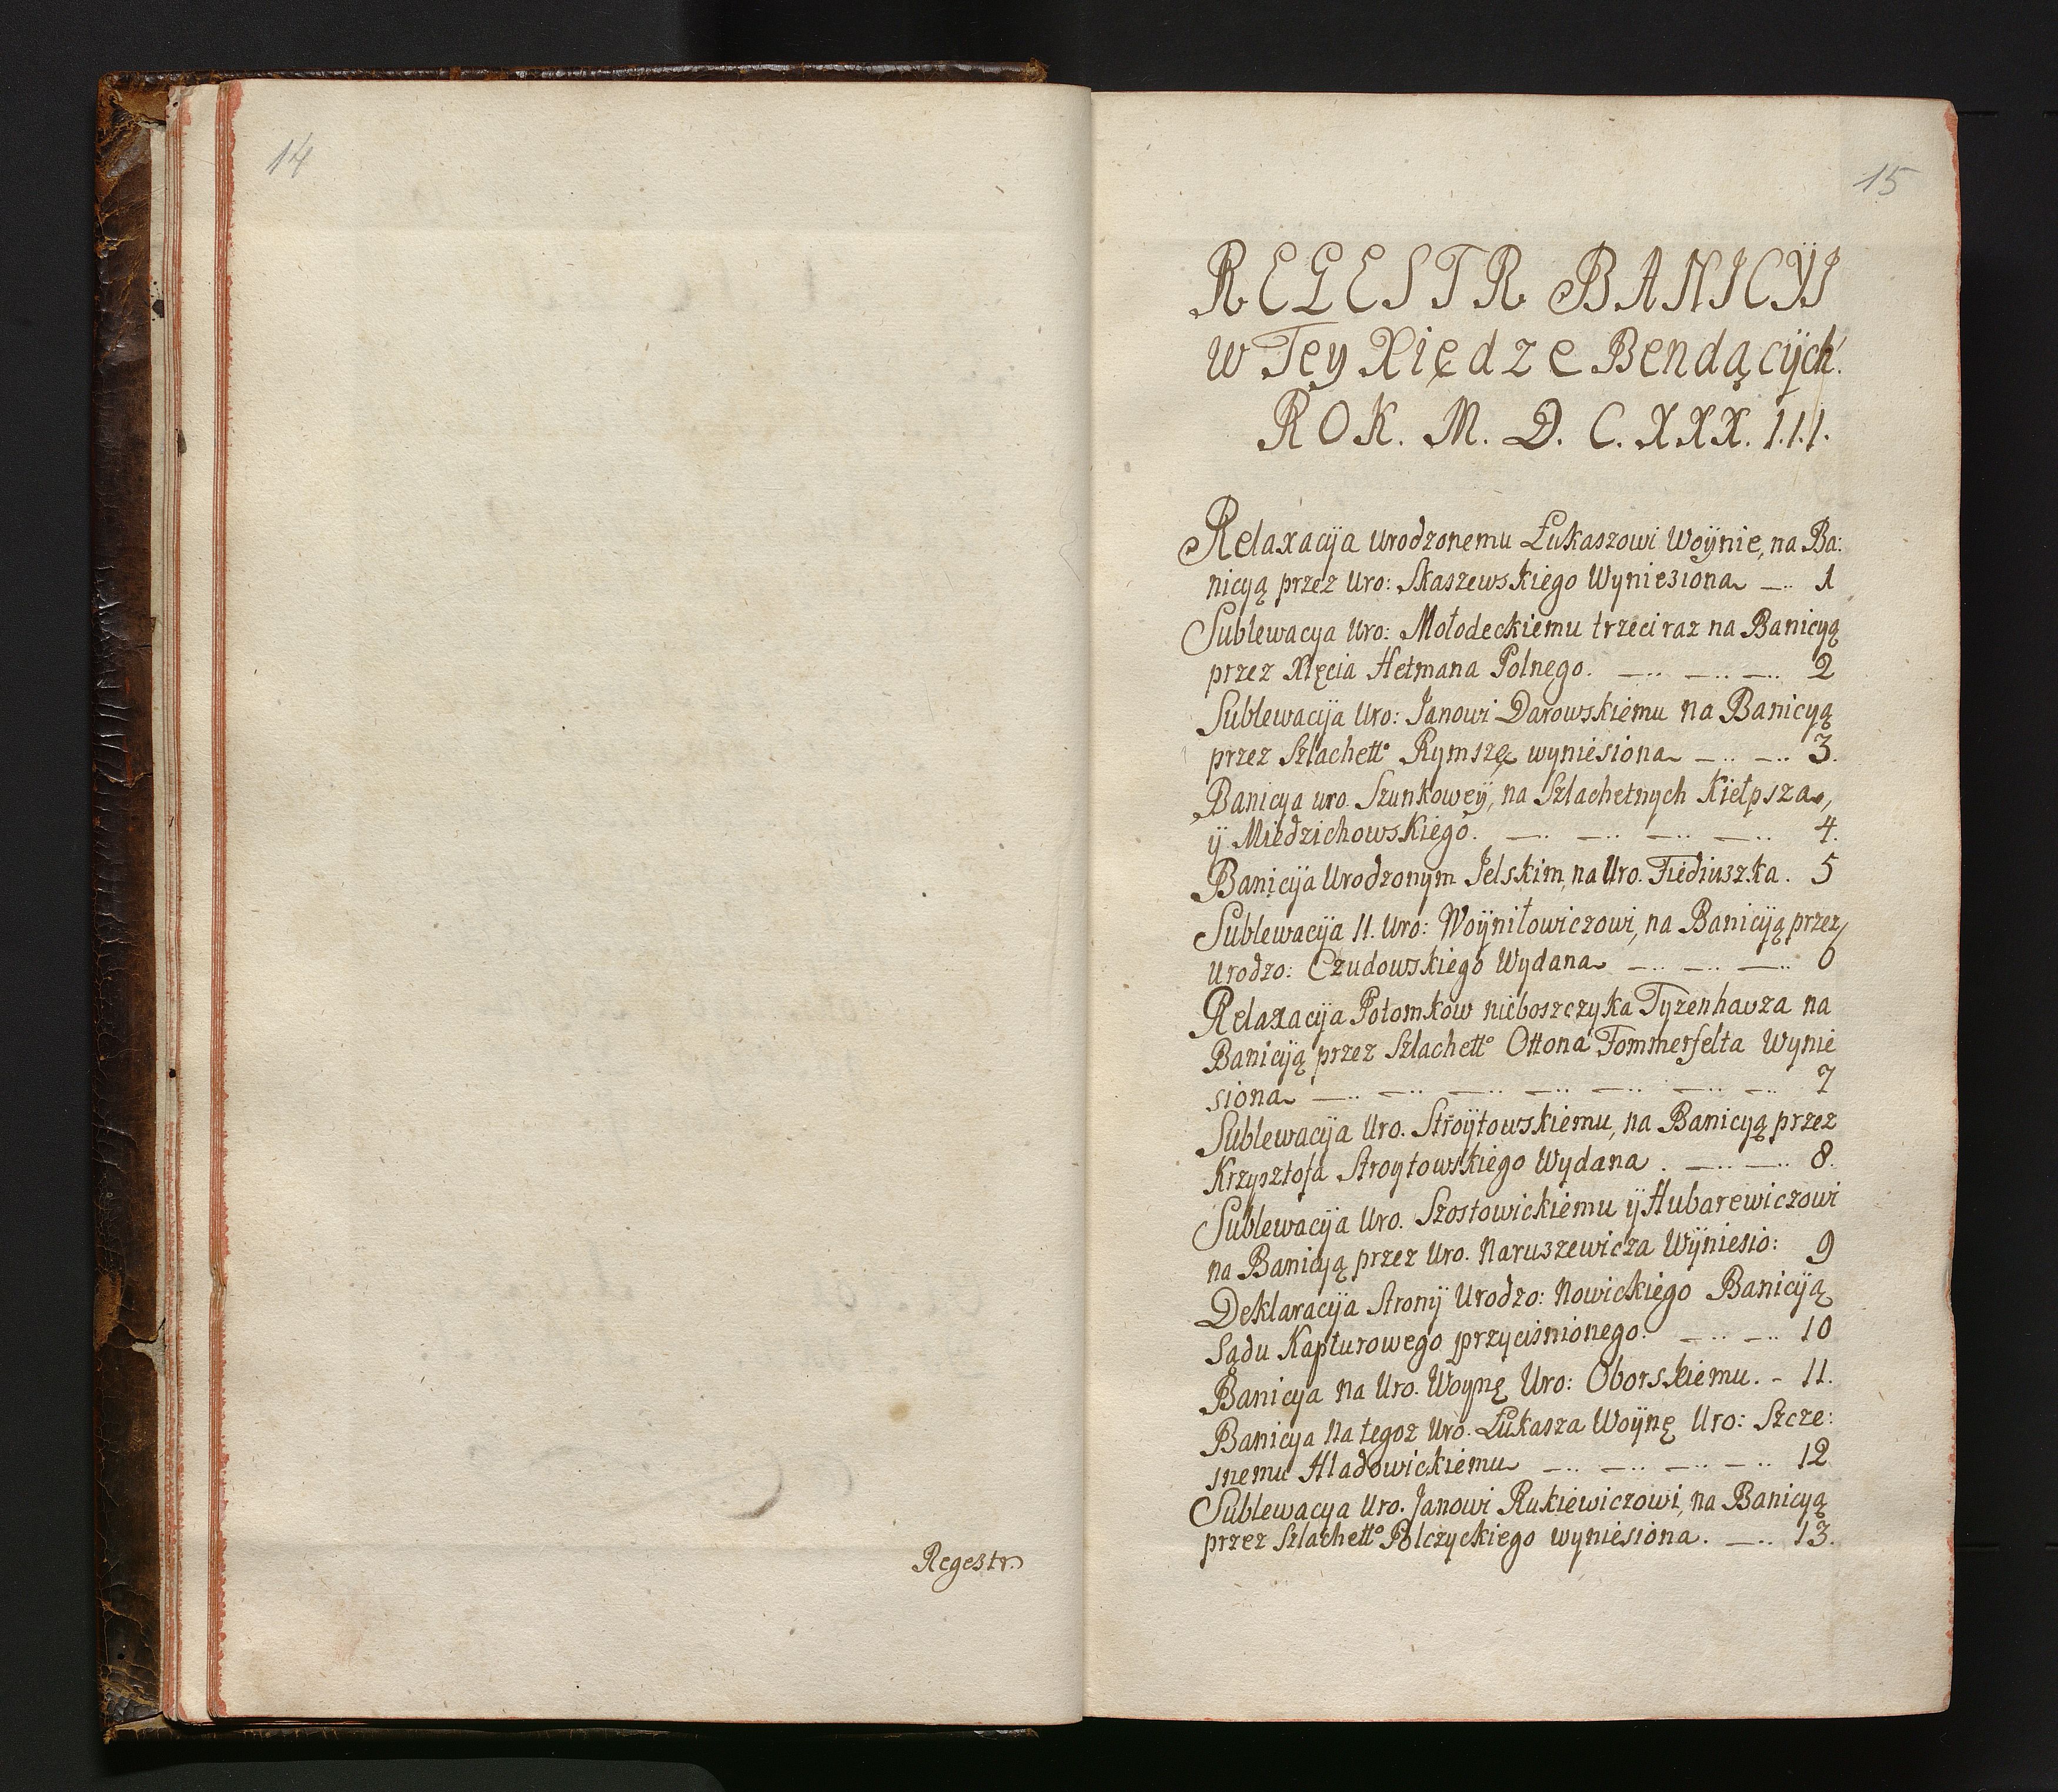 14
Regestr.
15
REGESTR BANICÿI
w Tey Xiędze Bendącÿch.
ROK. M. D. C. XXX. I.I.I.
Relaxacija Urodzonemu Łukaszowi Woÿnie, na Ba:
nicyą przez Uro: Skaszewskiego Wyniesiona 1
Sublewacya Uro: Mołodeckiemu trzeci raz na Banicyą
przez Xięcia Hetmana Polnego. 2
Sublewacija Uro: Janowi Darowskiemu na Banicyą
przez Szlachetto Rymszę wyniesiona 3.
Banicya uro. Szunkoweÿ, na Szlachetnych Kiełpsza,
ÿ Miedzichowskiego. 4.
Banicija Urodzonym Jelskim, na Uro. Fiediuszka. 5
Sublewacija 11. Uro: Woÿniłowiczowi, na Banicijąprzez
Urodzo: Czudowskiego Wydana 6
Relaxacija Potomkow nieboszczyka Tyzenhauza na
Banicÿą przez Szlachetto Ottona Fommerfelta Wynie
siona 7
Sublewacija Uro. Stroÿtowskiemu, na Banicyą przez
Krzysztofa Stroytowskiego Wydana. 8.
Sublewacija Uro. Szostowickiemu ÿ Hubarewiczowi
na Banicyą przez Uro. Naruszewicza Wÿniesio: 9
Deklaracija Stronÿ Urodzo: Nowickiego Banicÿą
Sądu Kapturowego przyciśnionego. 10
Banicya na Uro. Woynę Uro: Oborskiemu. - 11.
Banicya na tegoz Uro. Łukasza Woÿnę Uro: Szcze:
snemu Hladowickiemu 12
Sublewacya Uro. Janowi Rukiewiczowi, na Banicyą
przez Szlachetto Polczyckiego wyniesiona. 13.